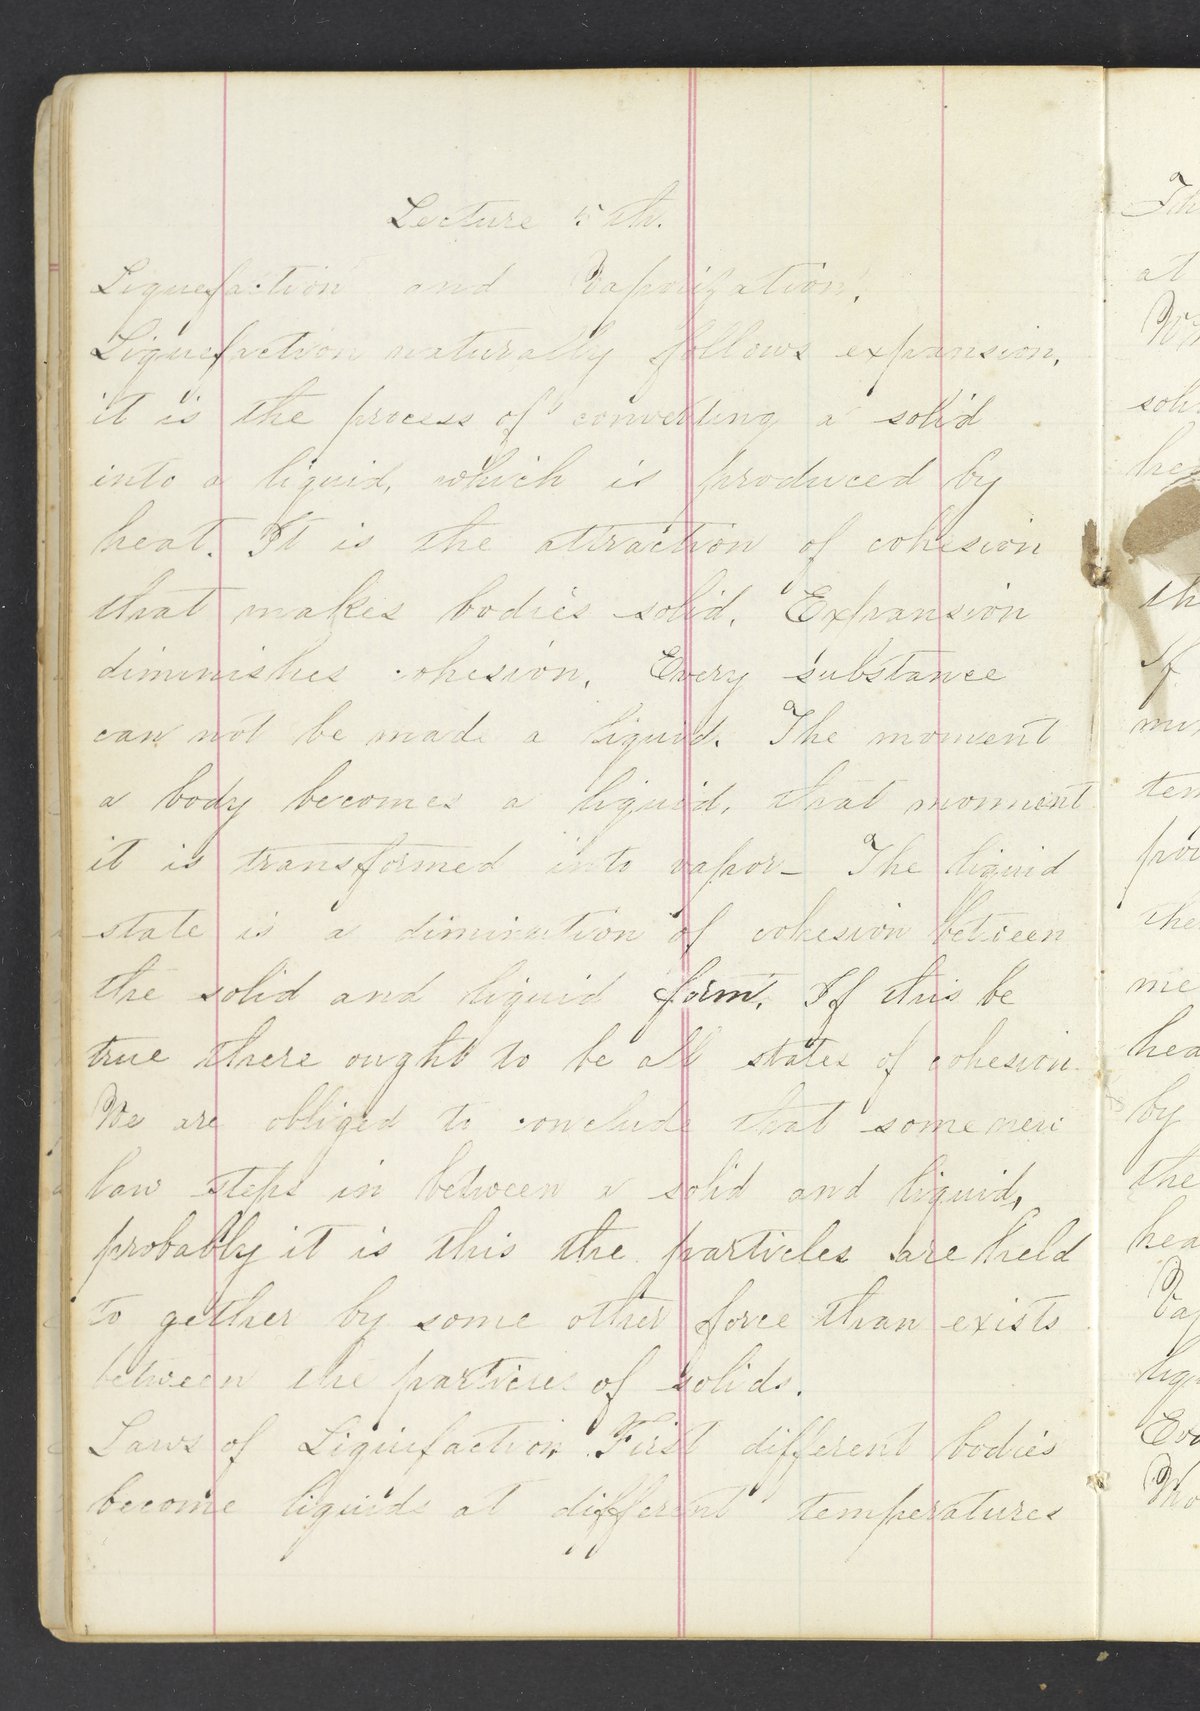 Lecture 5th.
Liquefaction and Vaporization.
Liquefaction naturally follows expansion,
it is the process of converting a solid
into a liquid, which is produced by
heat. It is the attraction of cohesion
that makes bodies solid. Expansion
diminishes cohesion. Every substance
can not be made a liquid. The moment
a body becomes a liquid, that moment
it is transformed into vapor_ The liquid
state is a diminution of cohesion between
the solid and liquid form. If this be
true there ought to be all states of cohesion.
We are obliged to conclude that some new
law steps in between a solid and liquid,
probably it is this the particles are held
to gether by some other force than exists
between the particles of solids.
Laws of Liquefaction. First different bodies
become liquids at different temperatures
at
the
by
the